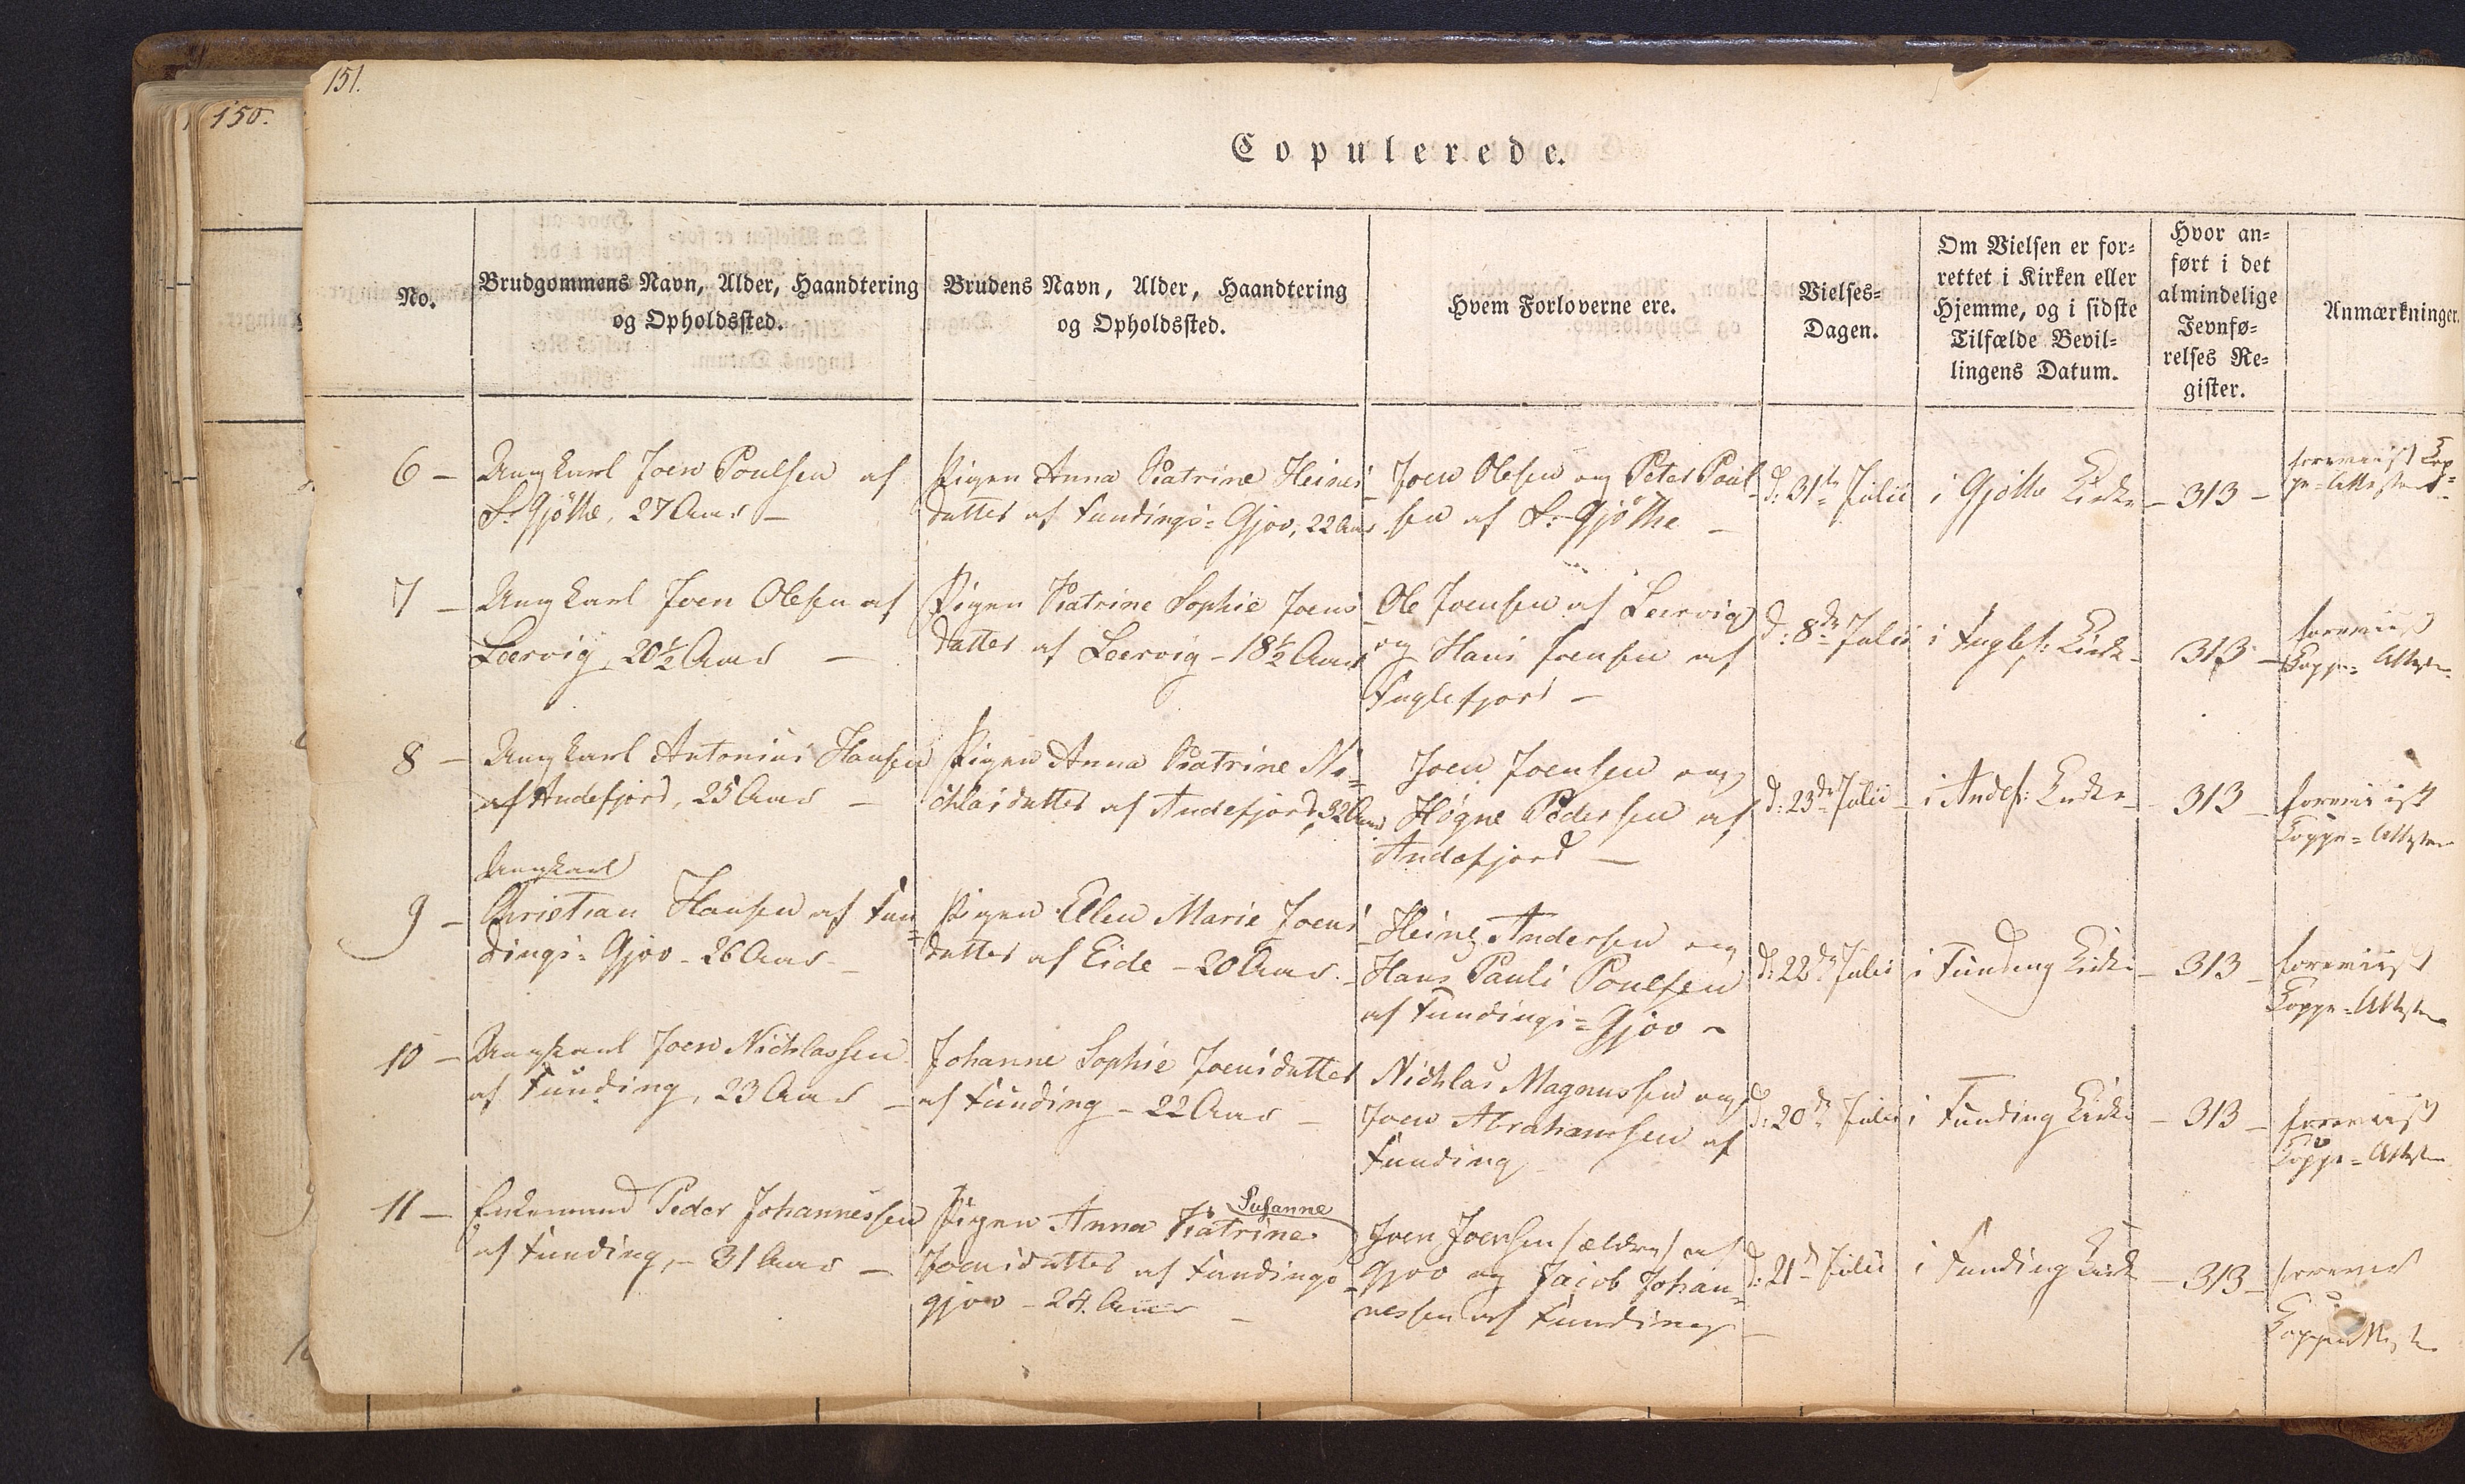 151.
150.
Copulerede.
No.
Brudgommens Navn, Alder, Haandtering
og Opholdssted.
Brudens Navn, Alder, Haandtering
og Opholdssted.
Hvem Forloverne ere.
Vielses-
Dagen.
Om Vielsen er for-
rettet i Kirken eller
Hjemme, og i sidste
Tilfælde Bevil-
lingens Datum.
Hvor an-
ført i det
almindelige
Jevnfø-
relses Re-
gister.
Anmærkninger.
6 -
Ungkarl Joen Poulsen af
S: Gjöthe, 27 Aar -
Pigen Anna Katrine Heines
datter af Fundings=Gjov, 22 Aar
Joen Olesen og Peter Poul
sen af S: Gjöthe -
d: 31te Julii
i Gjöthe Kirke
- 313 -
foreviist Kop
pe=Attester
7 -
Ungkarl Joen Olesen af
Leervig, 20½ Aar -
Pigen Katrine Sophie Joens
datter af Leervig - 18½ Aar
Ole Joensen af Leervig
og Hans Joensen af
Fuglefjord -
d: 8de Julii
i Fuglef: Kirke
313 -
foreviist
Koppe=Attester
8 -
Ungkarl Antonius Hansen
af Andefjord, 25 Aar -
Pigen Anna Katrine Ni=
chlasdatter af Andefjord, 32 Aar
Joen Joensen og
Högne Pedersen af
Andefjord -
d: 23de Julii
i Andef: Kirke
- 313 -
foreviist
Koppe=Attester
9 -
Ungkarl
Christian Hansen af Fun
dings=Gjov - 26 Aar -
Pigen Ellen Marie Joens
datter af Eide - 20 Aar.
Heine Andersen og
Hans Pauli Poulsen
af Fundings=Gjov -
d: 22de Julii
i Funding Kirke
- 313 -
foreviist
Koppe=Attester
10 -
Ungkarl Joen Nichlassen
af Funding, 23 Aar -
Johanne Sophie Joensdatter
af Funding - 22 Aar -
Nichlas Magnussen og
Joen Abrahamsen af
Funding
d: 20de Julii
i Funding Kirke
- 313 -
foreviist
Koppe=Attester
11 -
Enkemand Peder Johannessen
af Funding, - 31 Aar -
Susanne
Pigen Anna Katrine
Joensdatter af Fundings=
gjov - 24. Aar -
Joen Joensen (ældre) af
Gjov og Jacob Johan=
nessen af Funding -
d: 21de Julii
i Funding Kirke
- 313 -
foreviist
Koppeattester